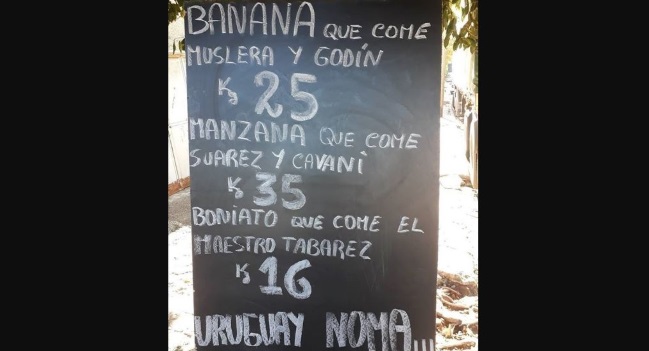 BANANA QUE COME
MUSLERA Y GODÍN
Kg 25
MANZANA QUE COME
SUAREZ Y CAVANI
Kg 35
BONIATO QUE COME EL
MAESTRO TABAREZ
Kg 16
URUGUAY NOMA...